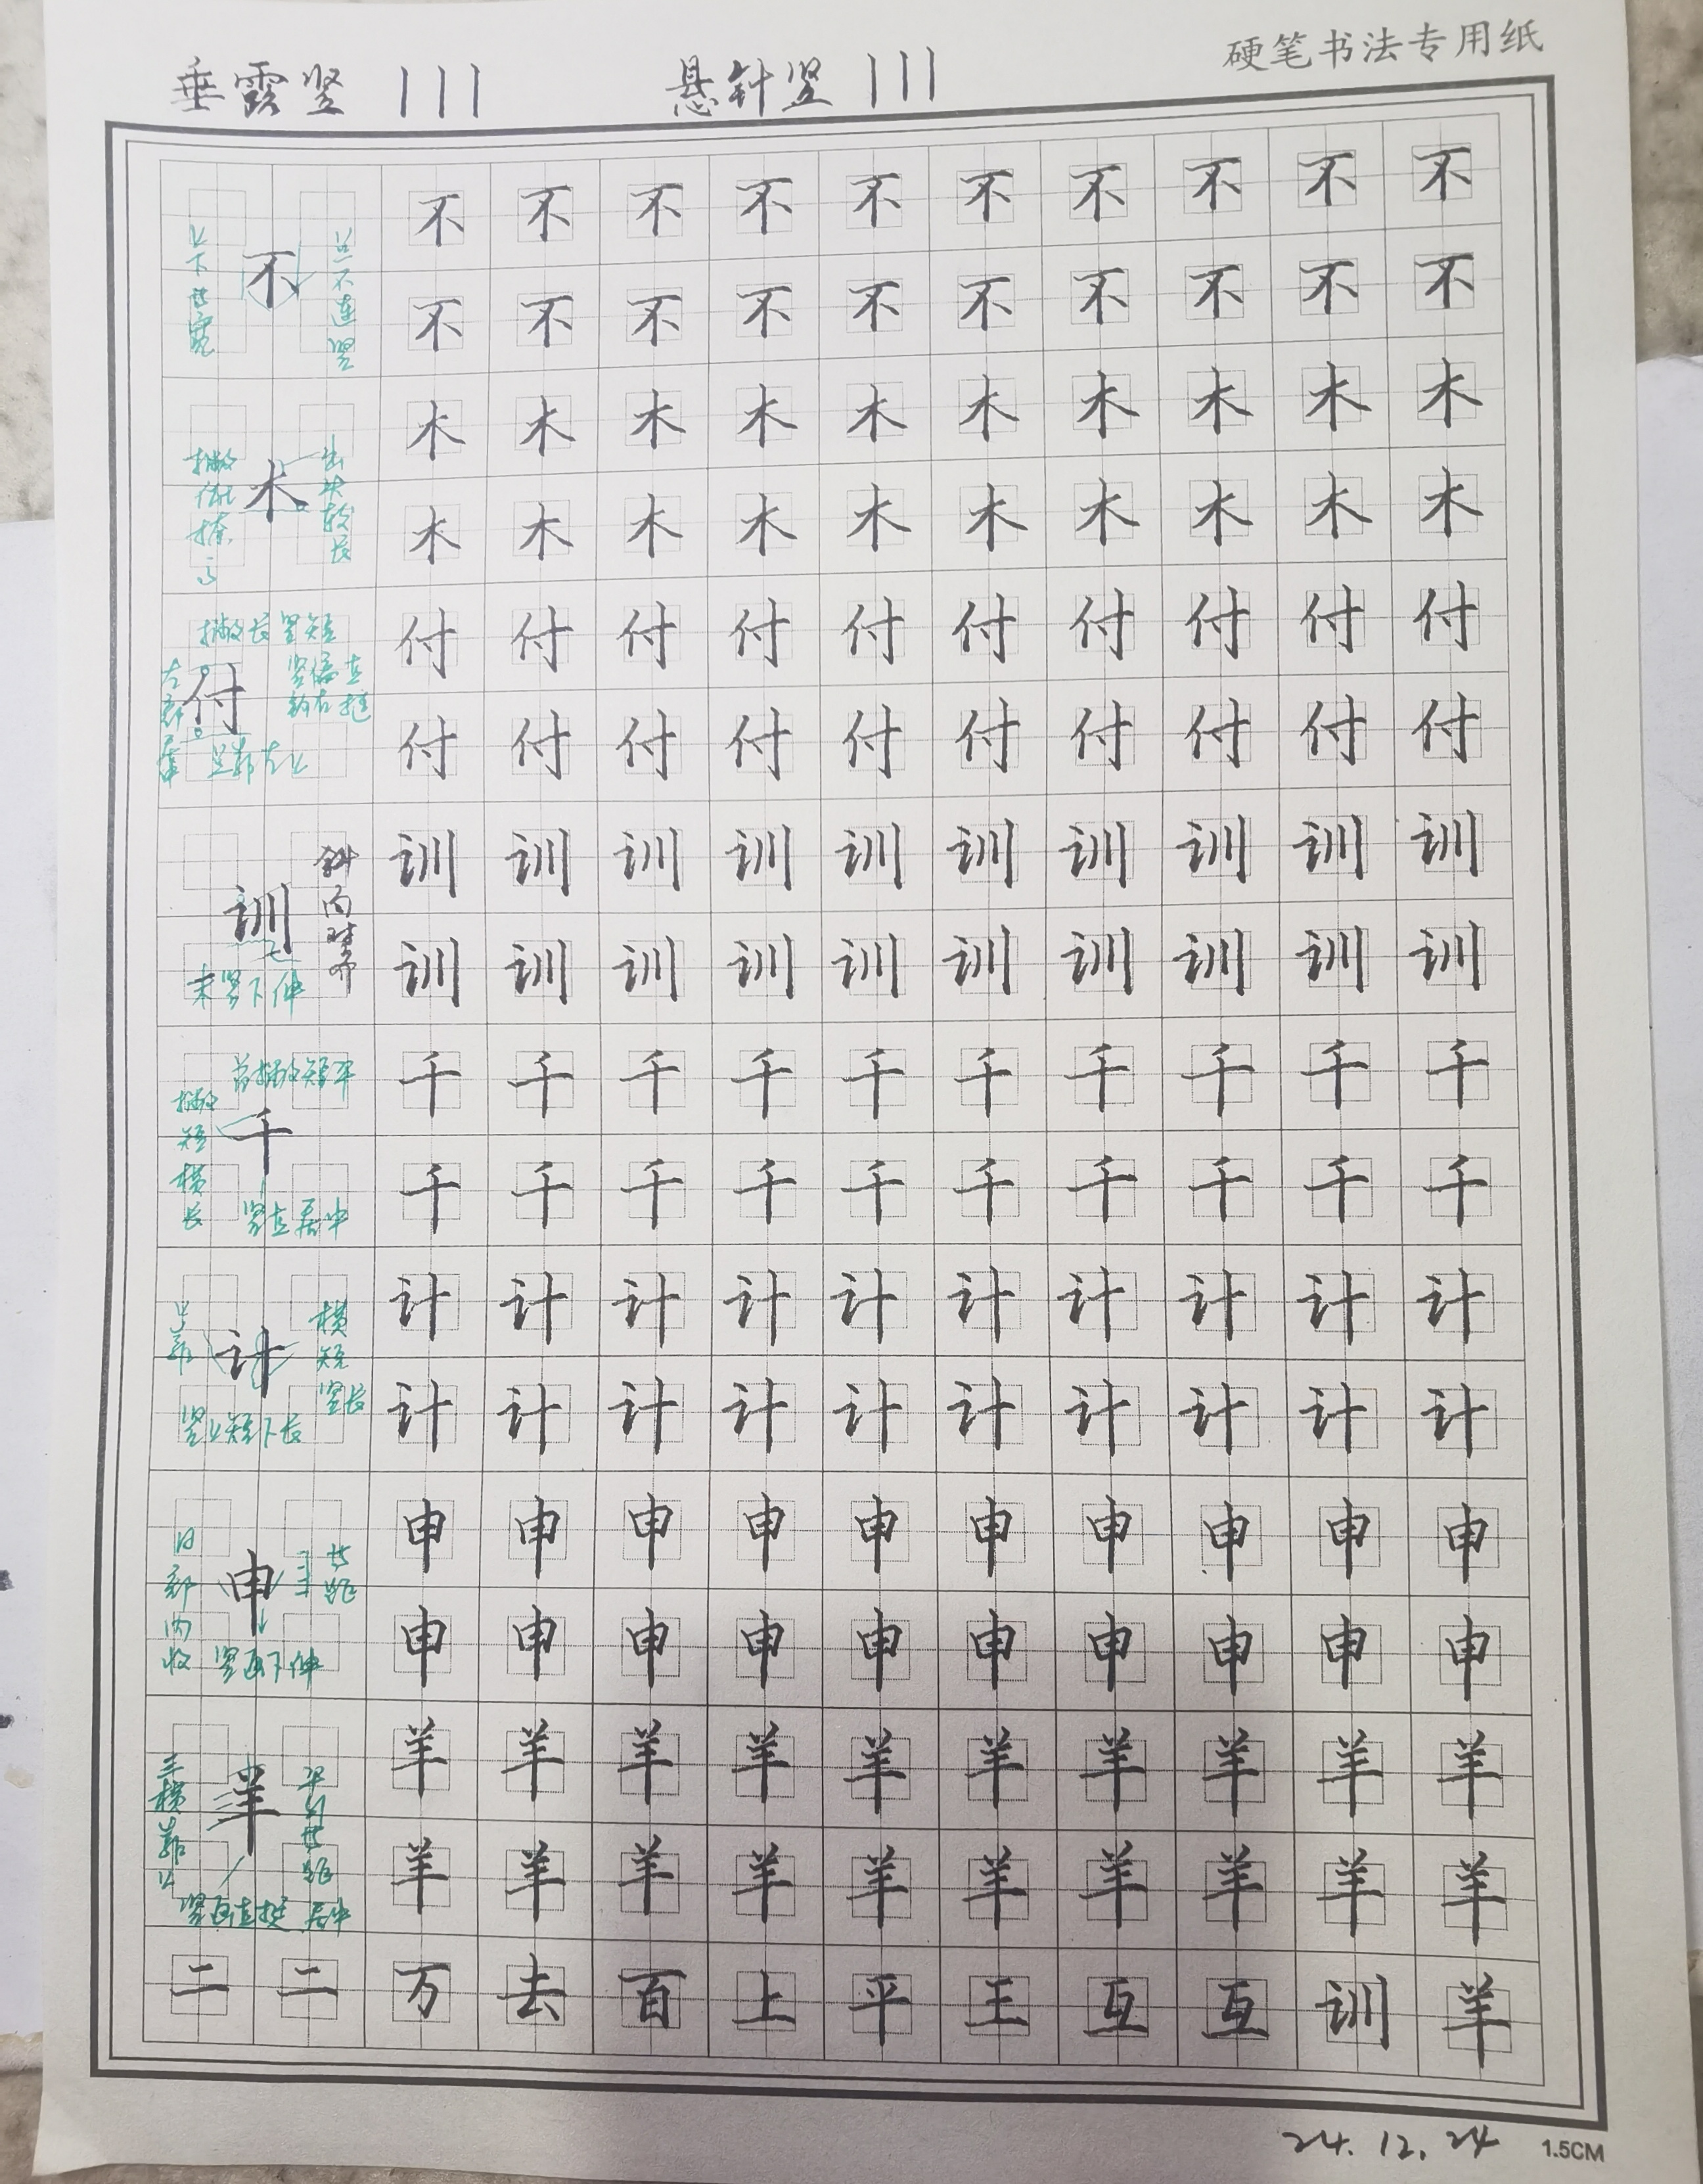 硬笔书法专用纸
垂露竖 丨丨丨 悬针竖 丨丨丨
不 不 不 不 不 不 不 不 不 不
上下等宽
不
点不连竖
不 不 不 不 不 不 不 不 不 不
木 木 木 木 木 木 木 木 木 木
撇低捺高
木
出头较长
木 木 木 木 木 木 木 木 木 木
撇长竖短
付 付 付 付 付 付 付 付 付 付
左部窄
付
点靠左上
付 付 付 付 付 付 付 付 付 付
训 训 训 训 训 训 训 训 训 训
训
斜向对齐
末竖下伸
训 训 训 训 训 训 训 训 训 训
首撇短平
千 千 千 千 千 千 千 千 千 千
撇短横长
千
竖直居中
千 千 千 千 千 千 千 千 千 千
计 计 计 计 计 计 计 计 计 计
计
横短竖长
竖上短下长
计 计 计 计 计 计 计 计 计 计
申 申 申 申 申 申 申 申 申 申
日部内收
申
等距
竖画下伸
申 申 申 申 申 申 申 申 申 申
羊 羊 羊 羊 羊 羊 羊 羊 羊 羊
三横靠上
羊
平行等距
竖画直挺 居中
羊 羊 羊 羊 羊 羊 羊 羊 羊 羊
二 二 万 去 百 上 平 王 互 互 训 羊
24.12.24
1.5CM